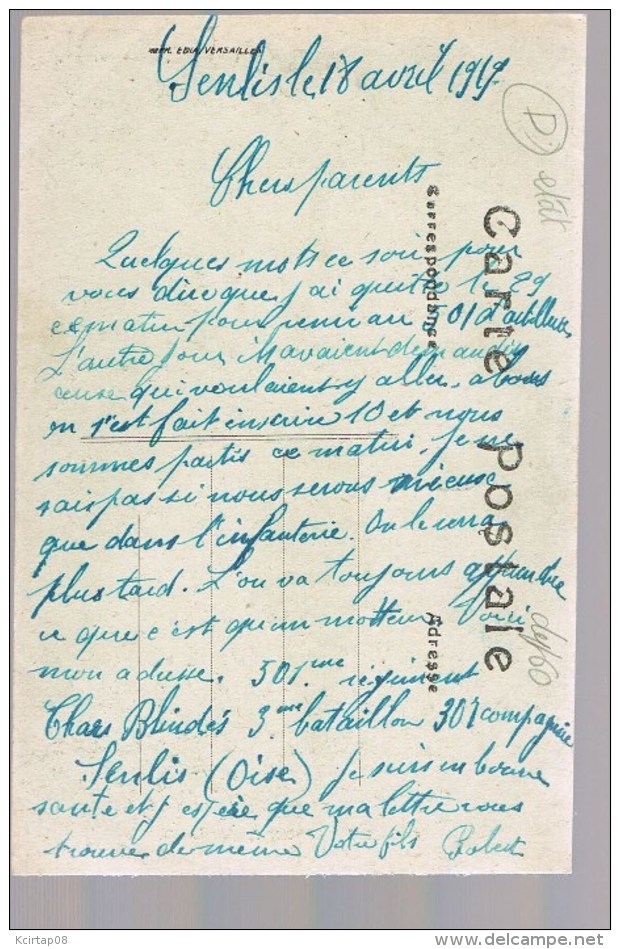 IMPR. EDIA VERSAILLES
Senlis le 18 avril 1919
D.
état
Chers parents
Carte Postale
Correspondance
Adresse
Quelques mots ce soir pour
vous dire que j'ai quitté le 29
ce matin pour venir au 501 d'artillerie
L'autre jour il avaient demandés
ceuse qui voulaient y aller. alors
on s'est fait inscrire 10 et nous
sommes partis ce matin. Je ne
sais pas si nous serons mieuse
que dans l'infanterie. On le verra
plus tard. L'on va toujours apprendre
ce que c'est qu'un motteur Voici
mon adresse. 501eme régiment
Chars Blindés 3eme bataillon 307 compagnie
Senlis (Oise) Je suis en bonne
santé et j'espère que ma lettre vous
trouve de même Votre fils Robert
dep 60
Kcirtap08
www.delcampe.net